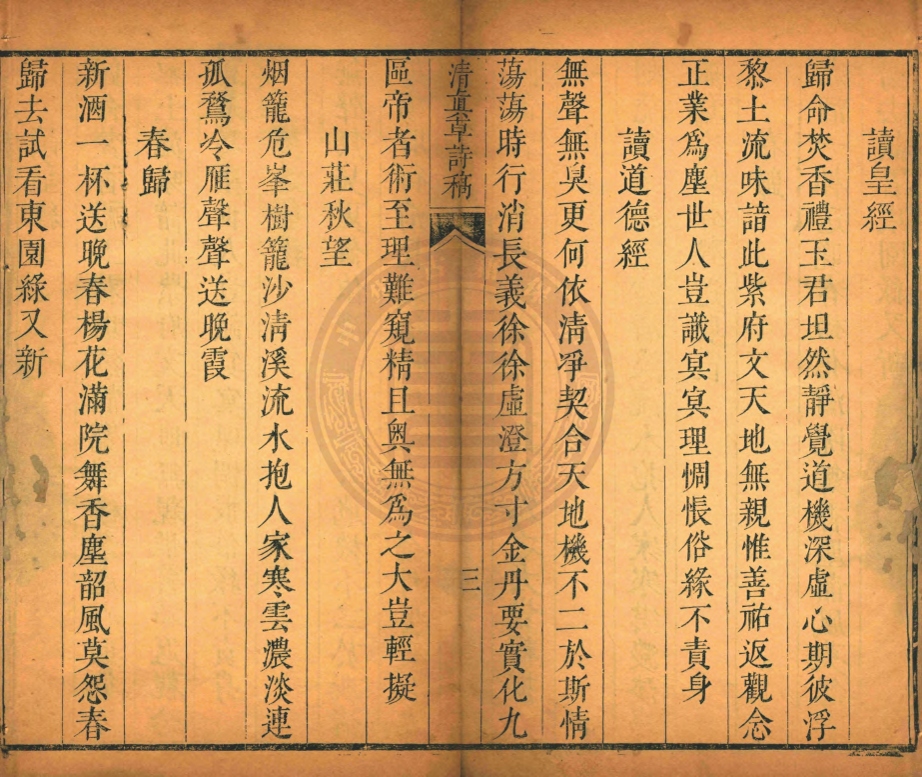 讀皇經
歸命焚香禮玉君坦然靜覺道機深虛心期彼浮
黎土流味諳此紫府文天地無親惟善祐返觀念
正業爲塵世人豈識冥冥理惆悵俗緣不責身
讀道德經
無聲無臭更何依淸凈契合天地機不二於斯情
蕩蕩時行消長義徐徐虛澄方寸金丹要實化九
清真草詩稿
三
區帝者術至理難窺精且奧無爲之大豈輕擬
山莊秋望
烟籠危峯樹籠沙淸溪流水抱人家寒雲濃淡連
孤鶩冷雁聲聲送晚霞
春歸
新酒一杯送晚春楊花滿院舞香塵韶風莫怨春
歸去試看東園綠又新